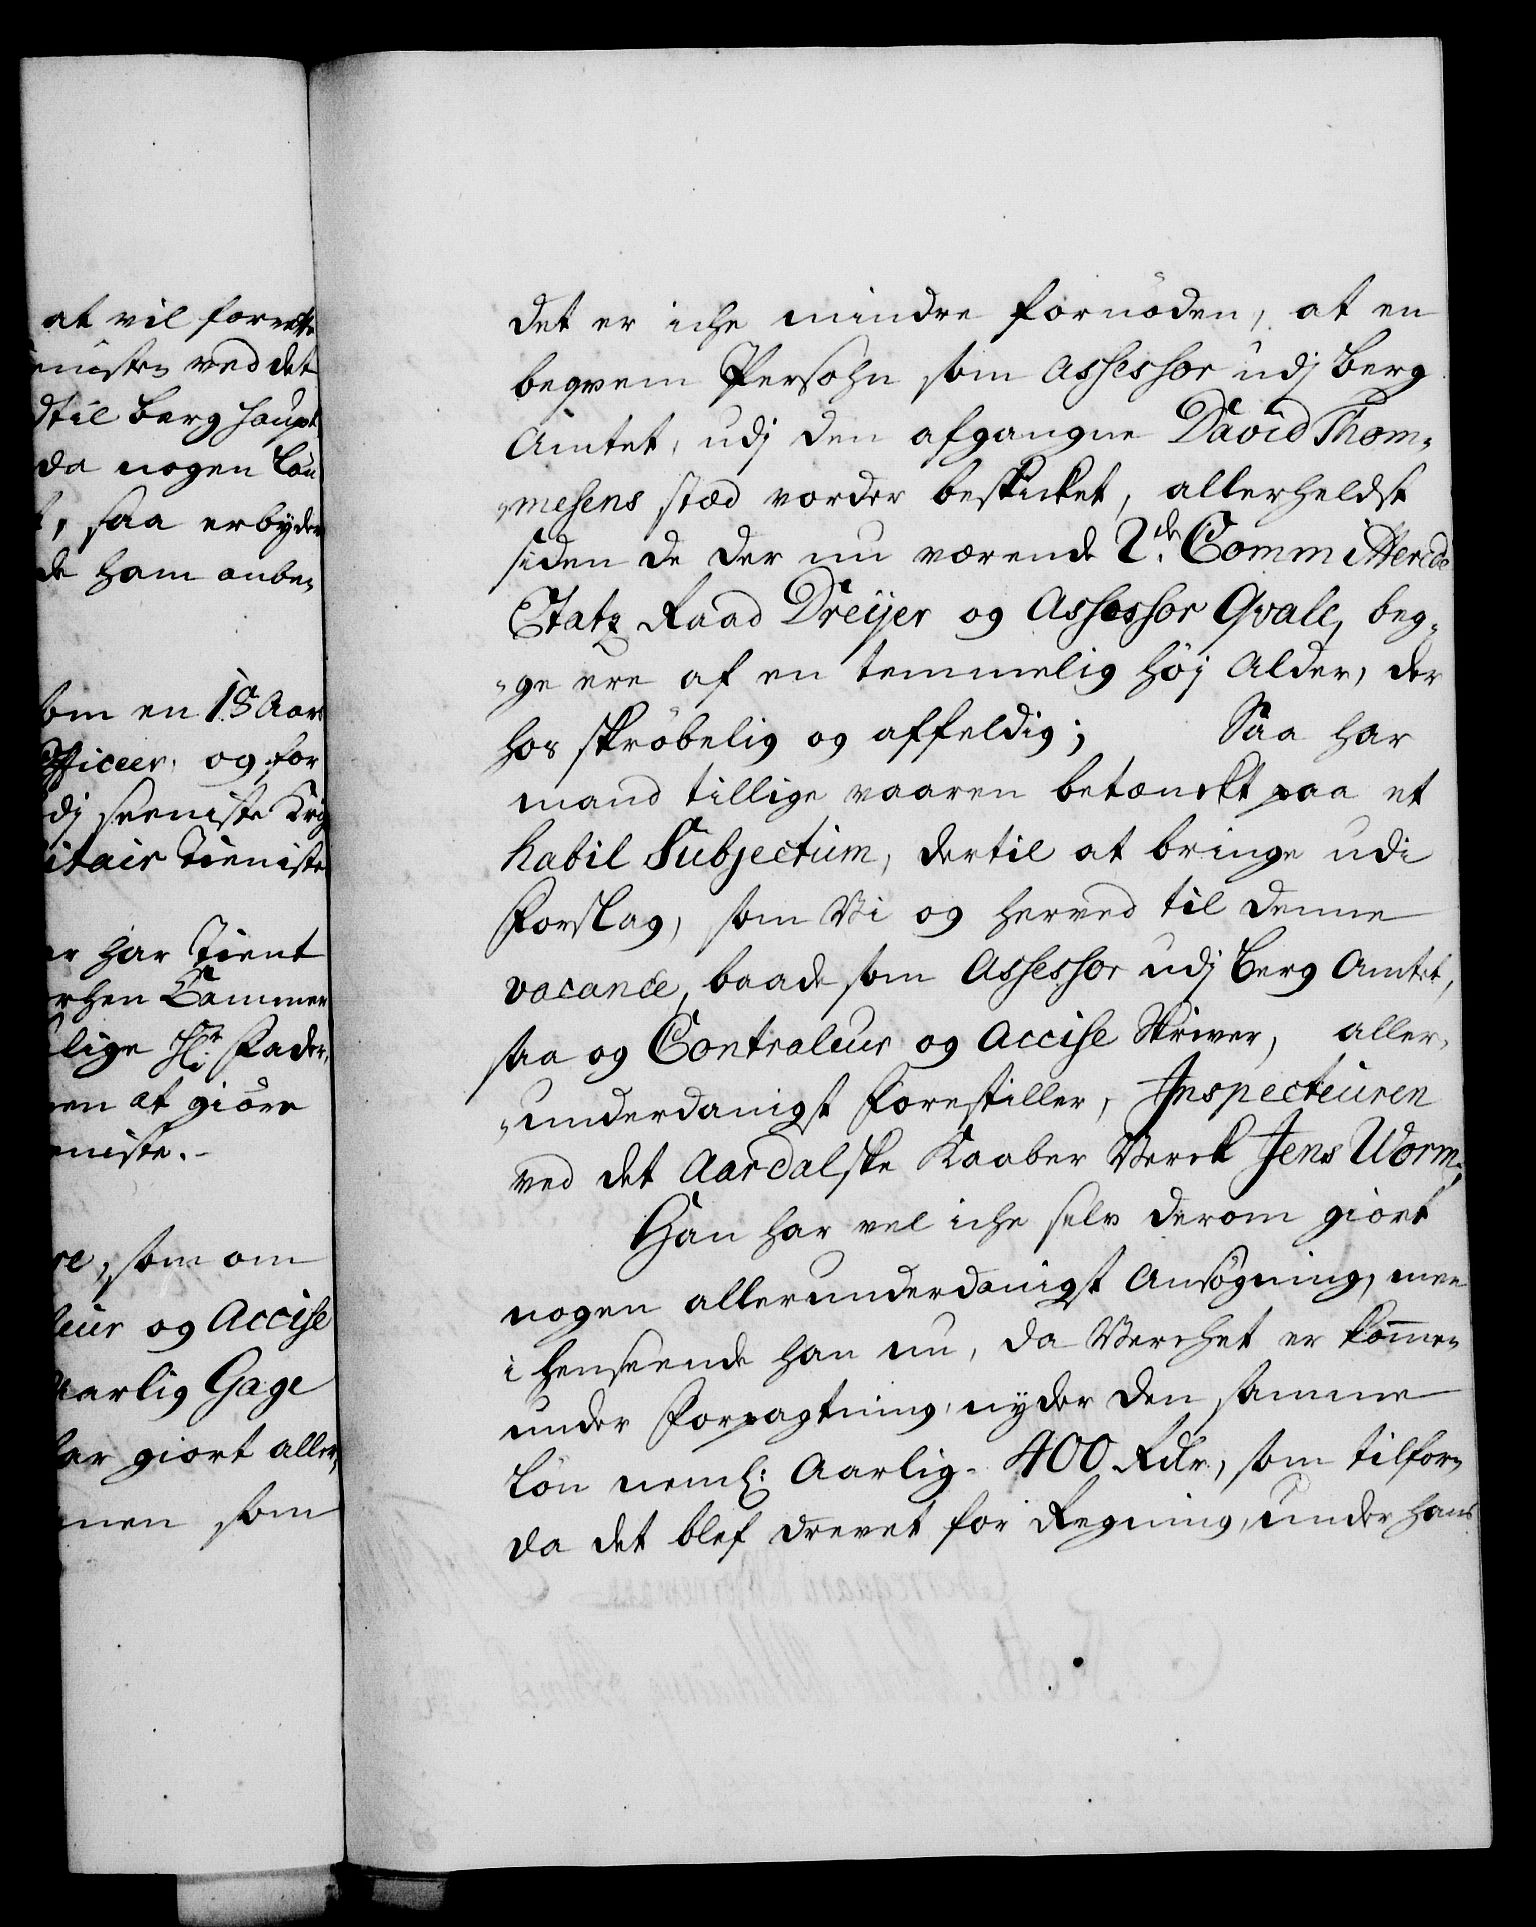 at vil forrette
enisten ved det
dtil Berg Haupt
da nogen Løn
t, saa erbyder
de ham anbe„
som en 18 Aar
Officeer, og for
dj seeniste Krig
itair Tieniste
ar har Tient
rhen Cammer
lige Hr. Fader,
en at giöre
niste.-
re, som om
leur og Accise
Aarlig Gage
har giort aller„
men som
det er iche mindre fornöden, at en
beqvem Persohn som Assessor udj Berg
Amtet, udj den afgangne David Thom„
„mesens stæd vorder beskicket, allerheldst
siden de der nu værende 2de. Committerede
Etatz Raad Dreÿer og Assessor Qvale, beg„
„ge ere af en temmelig höj Alder, der
hos skröbelig og affeldig; Saa har
mand tillige vaaren betænckt paa et
habil Subjectum, dertil at bringe udi
Forslag, som Vi og herved til denne
vacance, baade som Assessor udj Berg Amtet,
saa og Contraleur og Accise Skriver, aller„
„underdanigst Forestiller, Inspecteuren
ved det Aardalske Kaaber Verck Jens Worm;
Han har vel iche selv derom giort
nogen allerunderdanigst Ansögning, men
i henseende han nu, da Verchet er kommen
under Forpagtning, nyder den samme
Lön neml: Aarlig- 400 Rdr., som tilforn
da det blef drevet for Regning, under hans